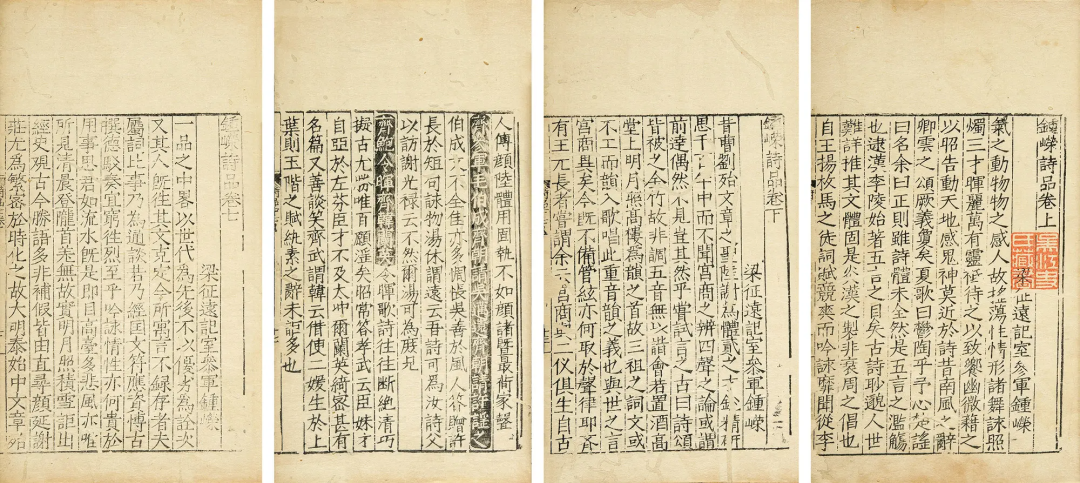 鍾嶸詩品卷上
梁征遠記室參軍鍾嶸
氣之動物物之感人故搖蕩性情形諸舞詠照
燭三才暉麗萬有靈祇待之以致饗幽微藉之
以昭告動天地感鬼神莫近於詩昔南風之辭
卿雲之頌厥義夐矣夏歌曰鬱陶乎予心楚謠
曰名余曰正則雖詩體未全然是五言之濫觴
也逮漢李陵始著五言之目矣古詩眇邈人世
難詳推其文體固是炎漢之製非衰周之倡也
自王揚枚馬之徒詞賦競爽而吟詠靡聞從李
鍾嶸詩品卷下
梁征遠記室參軍鍾嶸
昔曹劉殆文章之聖陸謝為體貳之才銳精研
思千百年中而不聞宮商之辨四聲之論或謂
前達偶然不見豈其然乎嘗試言之古曰詩頌
皆被之金竹故非調五音無以諧會若置酒高
堂上明月照高樓為韻之首故三祖之詞文或
不工而韻入歌唱此重音韻之義也與世之言
宮商異矣今既不備管絃亦何取於聲律耶齊
有王元長者嘗謂余云宮商與二儀俱生自古
人傅顏陸體用固執不如顏諸暨最荷家聲
齊參軍毛伯成齊朝請吳邁遠齊朝請許瑤之
伯成文不全佳亦多惆悵吳善於風人答贈許
長於短句詠物湯休謂遠云吾詩可為汝詩父
以訪謝光祿云不然爾湯可為庶兄
齊鮑令暉齊韓蘭英令暉歌詩往往斷絶清巧
擬古尤勝唯百願淫矣昭常答孝武云臣妹才
自亞於左芬臣才不及太冲爾蘭英綺密甚有
名篇又善談笑齊武謂韓云借使二媛生於上
葉則玉階之賦紈素之辭未詎多也
鍾嶸詩品卷
梁征遠記室參軍鍾嶸
一品之中畧以世代為先後不以優劣為詮次
又其人既往其文克定今所寓言不録存者夫
屬詞比事乃為通談若乃經國文符應資博古
撰德駁奏宜窮往烈至乎吟詠情性亦何貴於
用事思君如流水既是即目高臺多悲風亦唯
所見清晨登隴首羌無故實明月照積雪詎出
經史觀古今勝語多非補假皆由直尋顏延謝
莊尤為繁密於時化之故大明泰始中文章殆